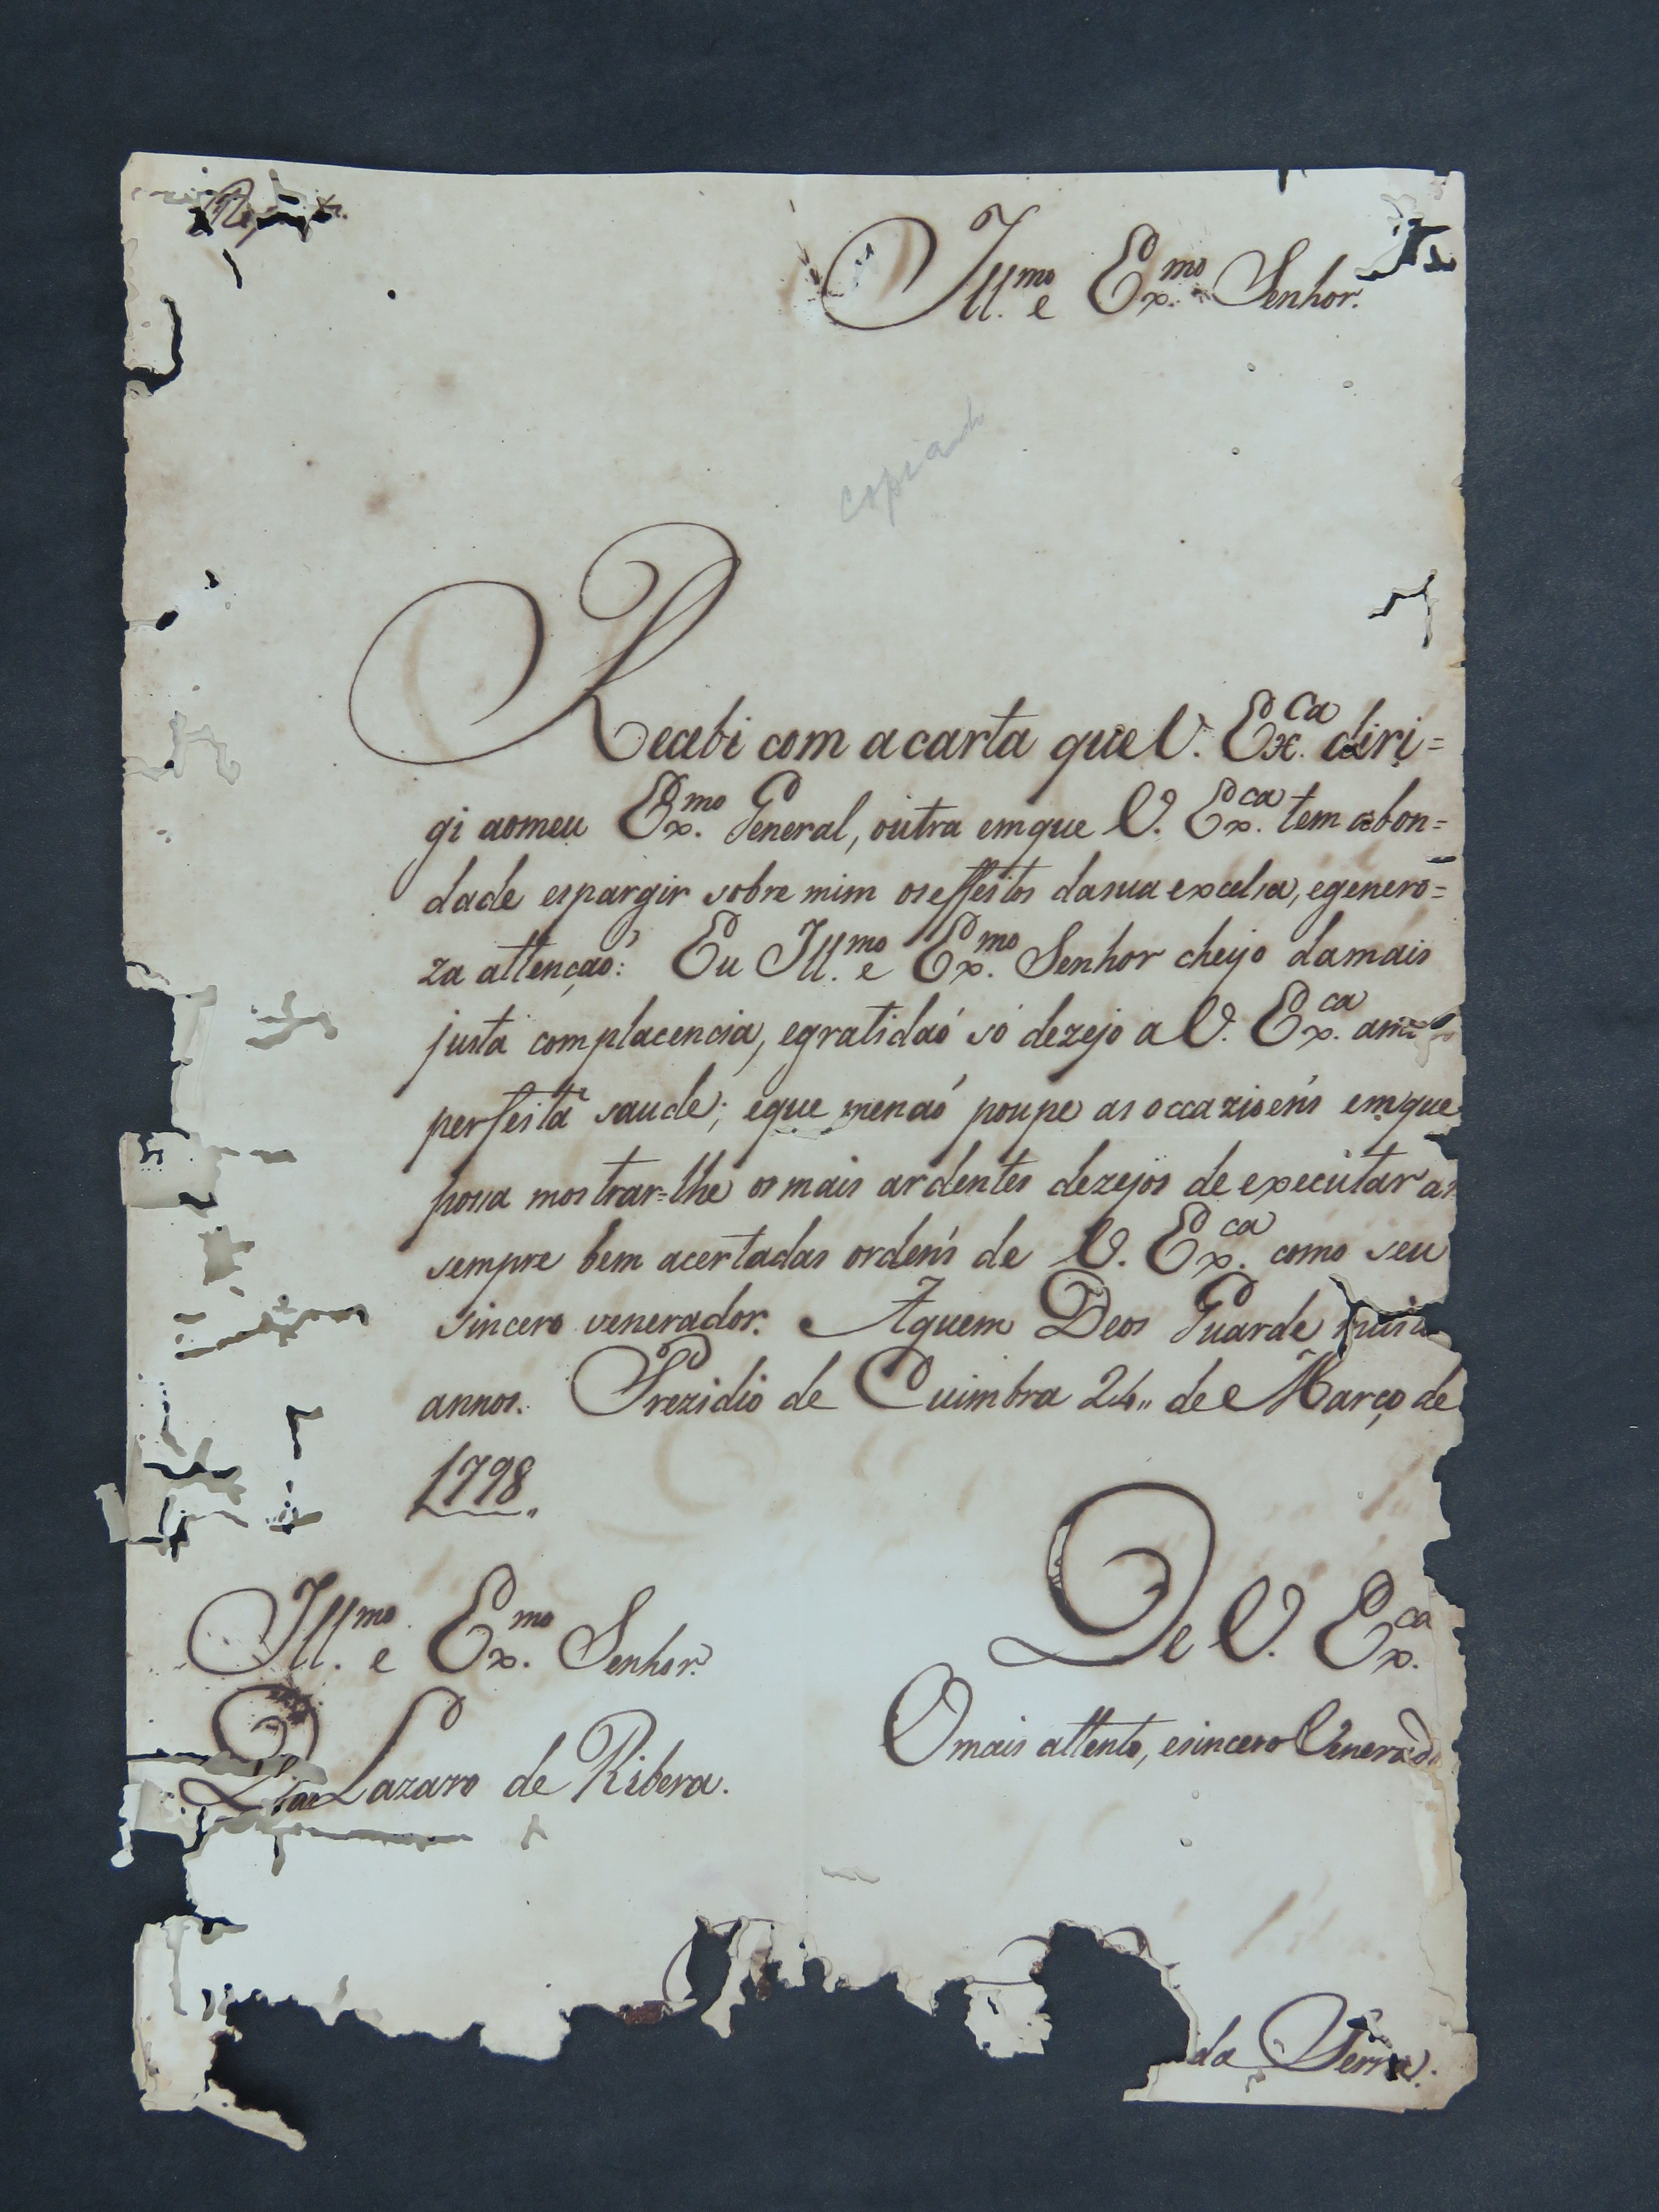 Ill.mo e Ex.mo Senhor.
copiado
Recebi com a carta que V. Ex.ca diri=
gi ao meu Ex.mo General, outra em que V. Ex.ca tem abon=
dade espargir sobre mim os effeitos dasua excelsa, egenero=
za attençaõ: Eu Ill.mo e Ex.mo Senhor cheyo damais
justa complacencia, egratidaõ só dezejo a V. Ex.ca
perfeita saude; eque menaõ poupe as occazioẽns emque
possa mostrar=lhe os mais ardentes dezejos de executar as
sempre bem acertadas ordeñs de V. Ex.ca como seu
sincero venerador. Aquem Deos Guarde
annos. Prezidio de Cuimbra 24,, de Março de
1798,,
De V. Ex.ca
Ill.mo e Ex.mo Senhor.
O mais attento, esincero Venerad
Lazaro de Ribera.
da Serra.